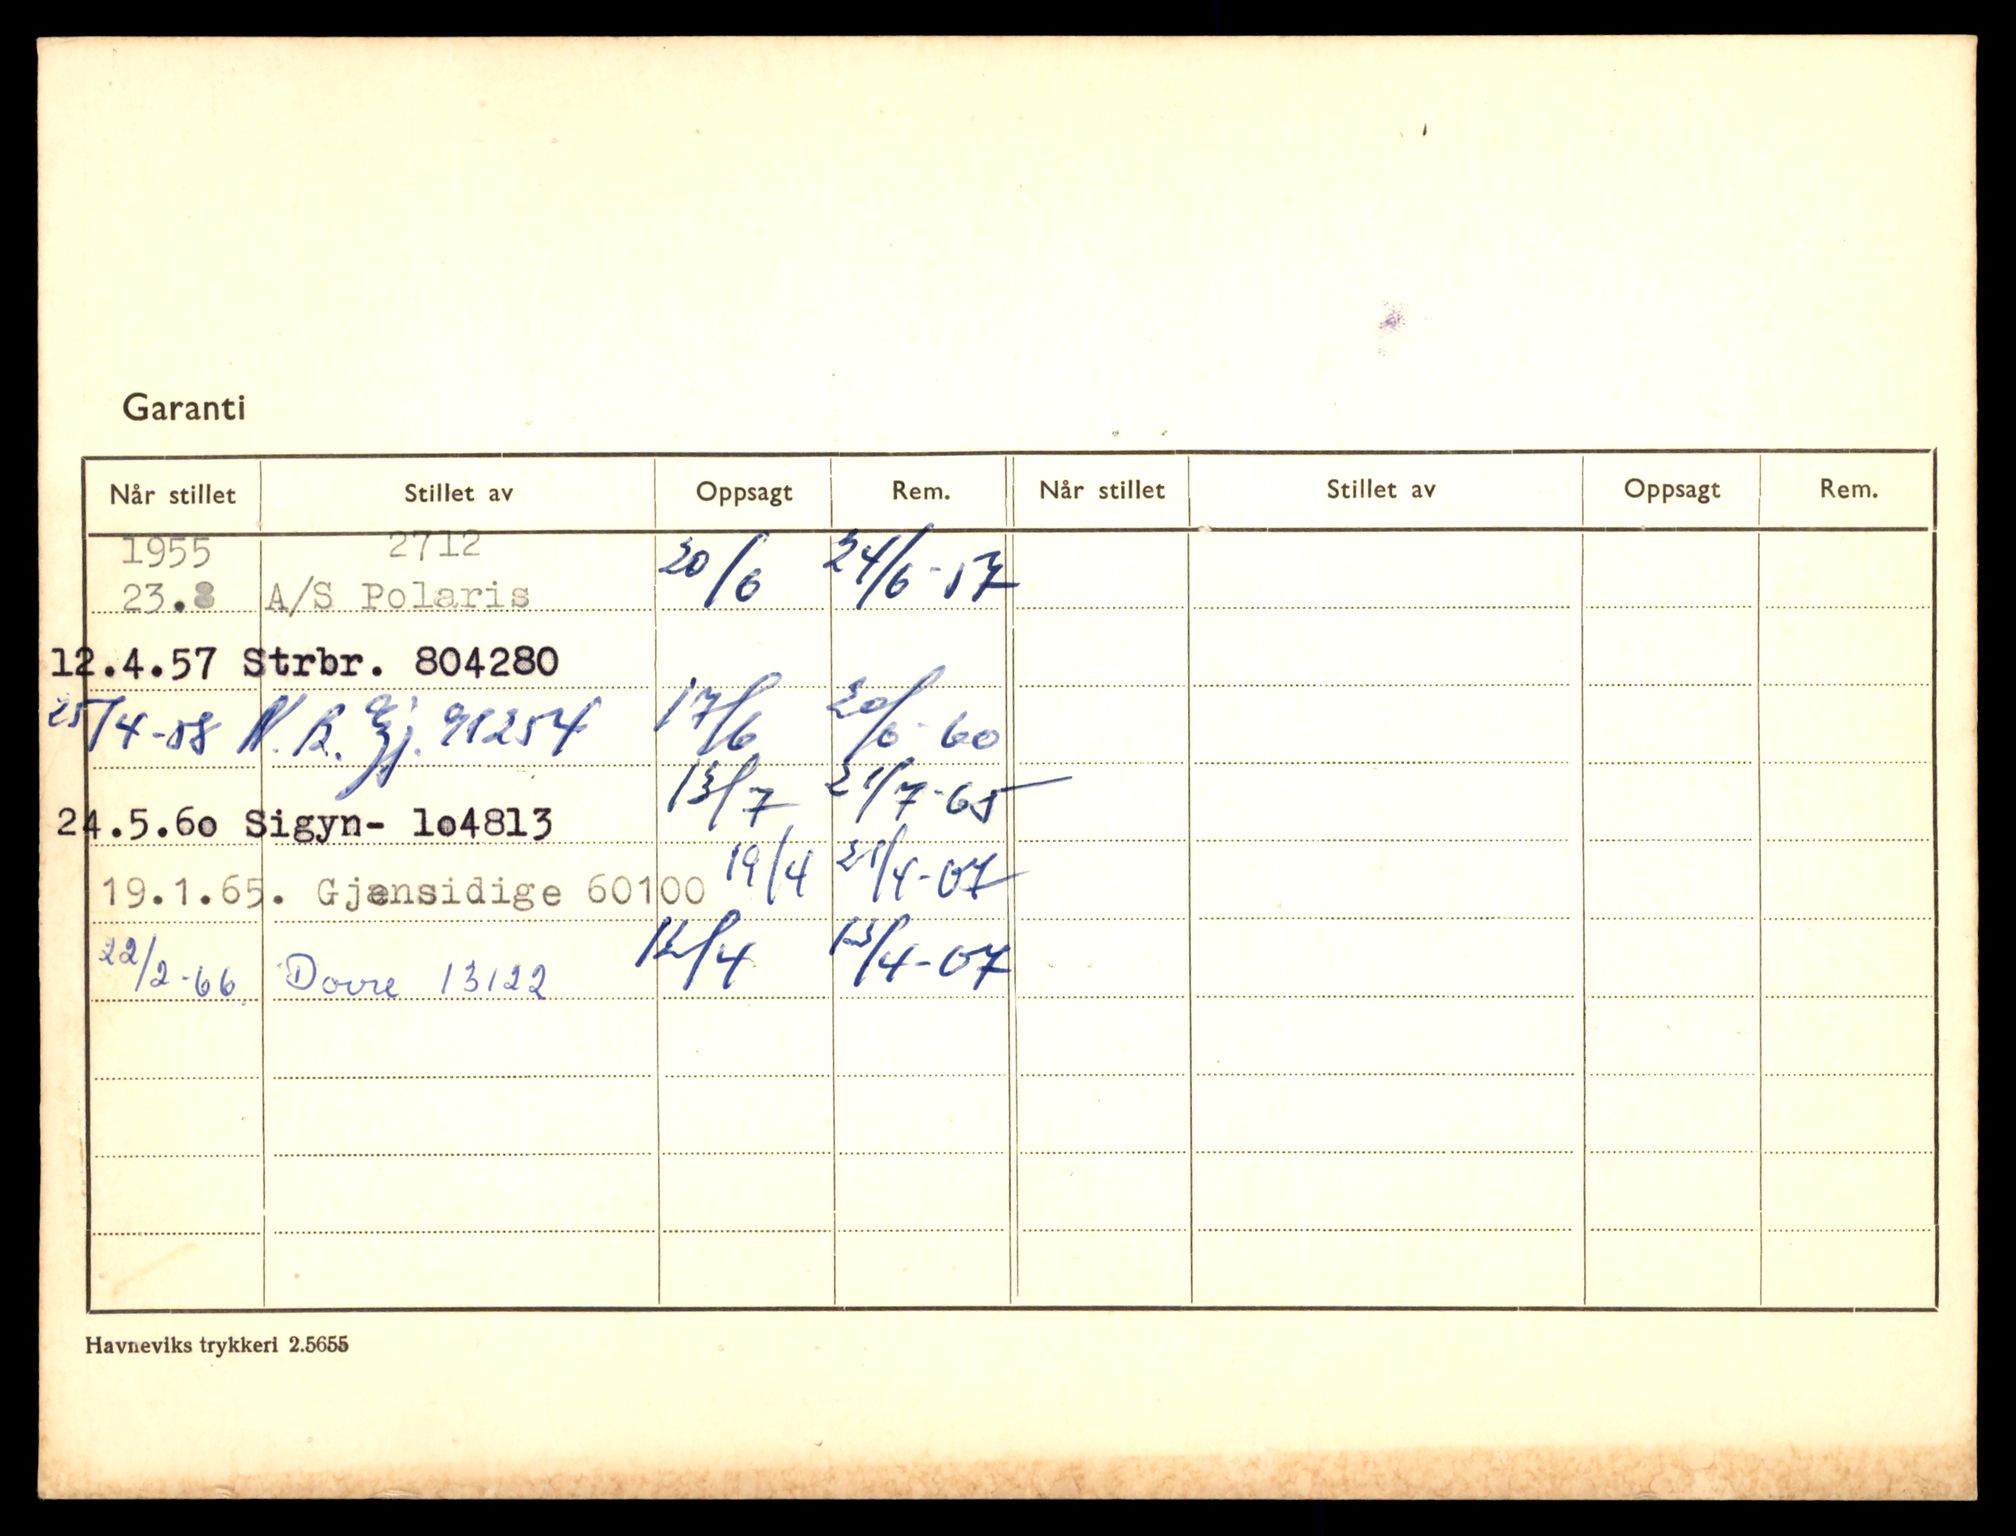 Garanti
Når stillet Stillet av Oppsagt Rem. Når stillet Stillet av Oppsagt Rem.
1955 2712
23.8 A/S Polaris 20/6 24/6-57
12.4.57 Strbr. 804280
25/4-58 N. B. Gj. 91254 17/6 20/6-60
13/7 21/7-65
24.5.6o Sigyn- 1o4813
19.1.65. Gjensidige 60100 19/4 21/4-67
22/2-66 Dovre 13122 12/4 13/4-67
Havneviks trykkeri 2.5655